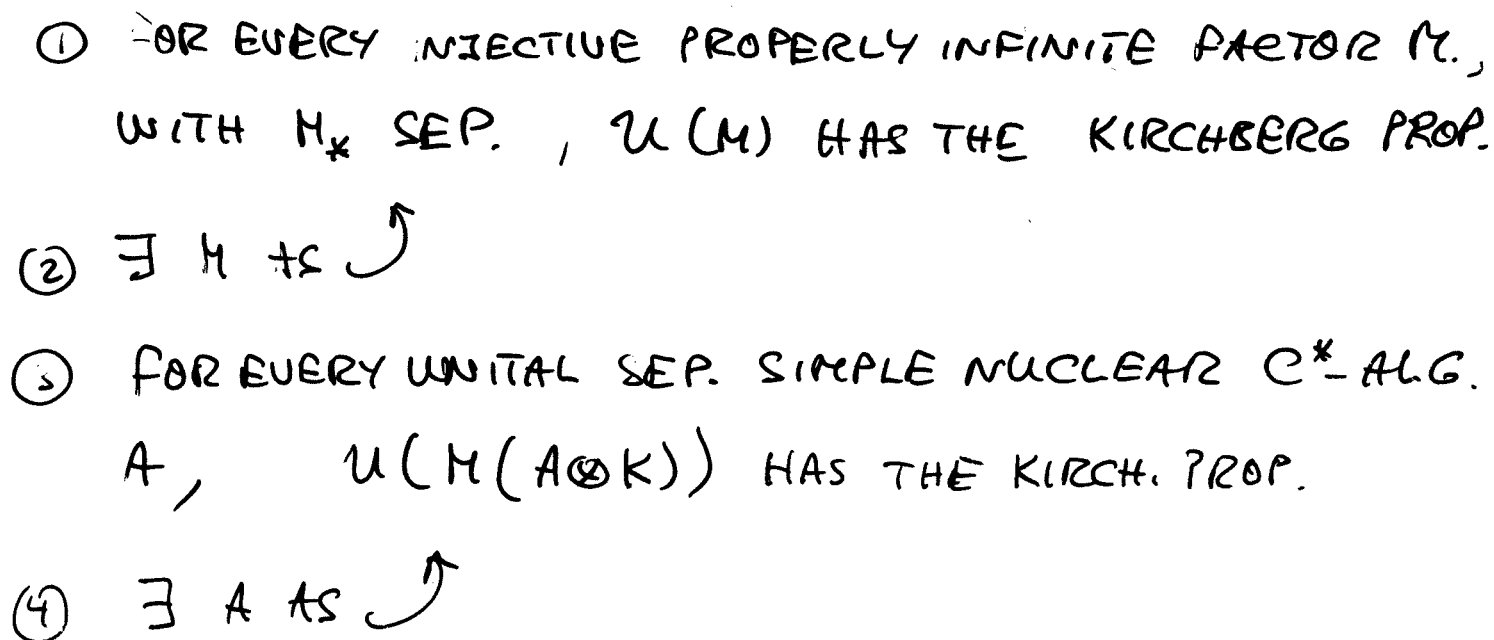 ① FOR EVERY INJECTIVE PROPERLY INFINITE FACTOR M,
WITH M_* SEP., U(M) HAS THE KIRCHBERG PROP.
② ∃ M AS ⤴
③ FOR EVERY UNITAL SEP. SIMPLE NUCLEAR C*-ALG.
A, U(M(A⊗K)) HAS THE KIRCH. PROP.
④ ∃ A AS ⤴